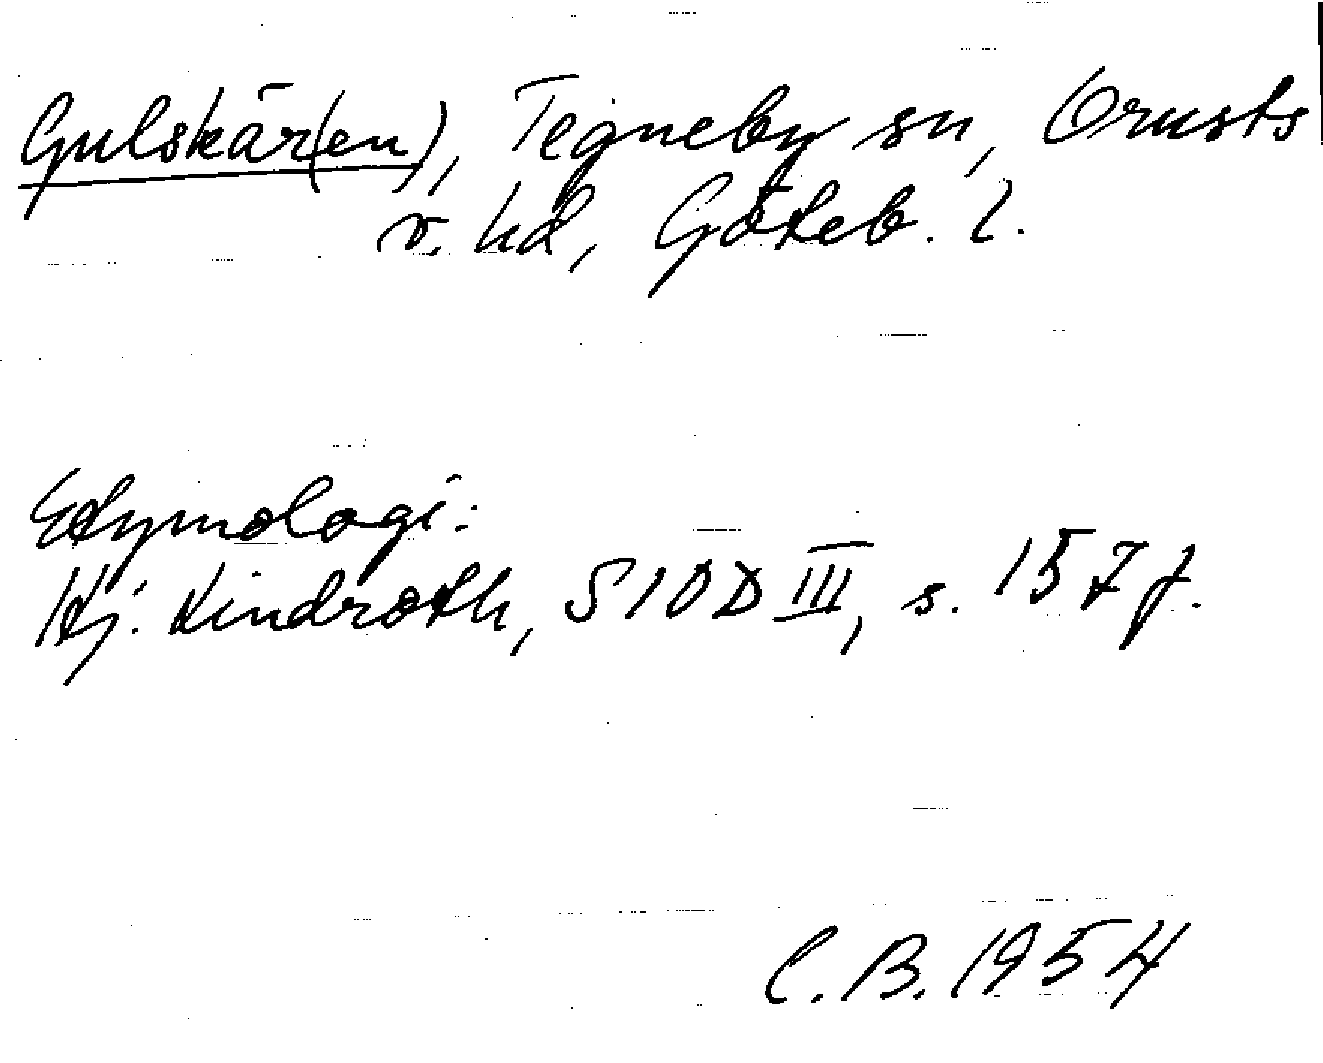 Gulskär(en), Tegneby sn, Orusts
v. hd, Göteb. l.
Etymologi:
Hj. Lindroth, SIOD III, s. 157 f.
C. B. 1954